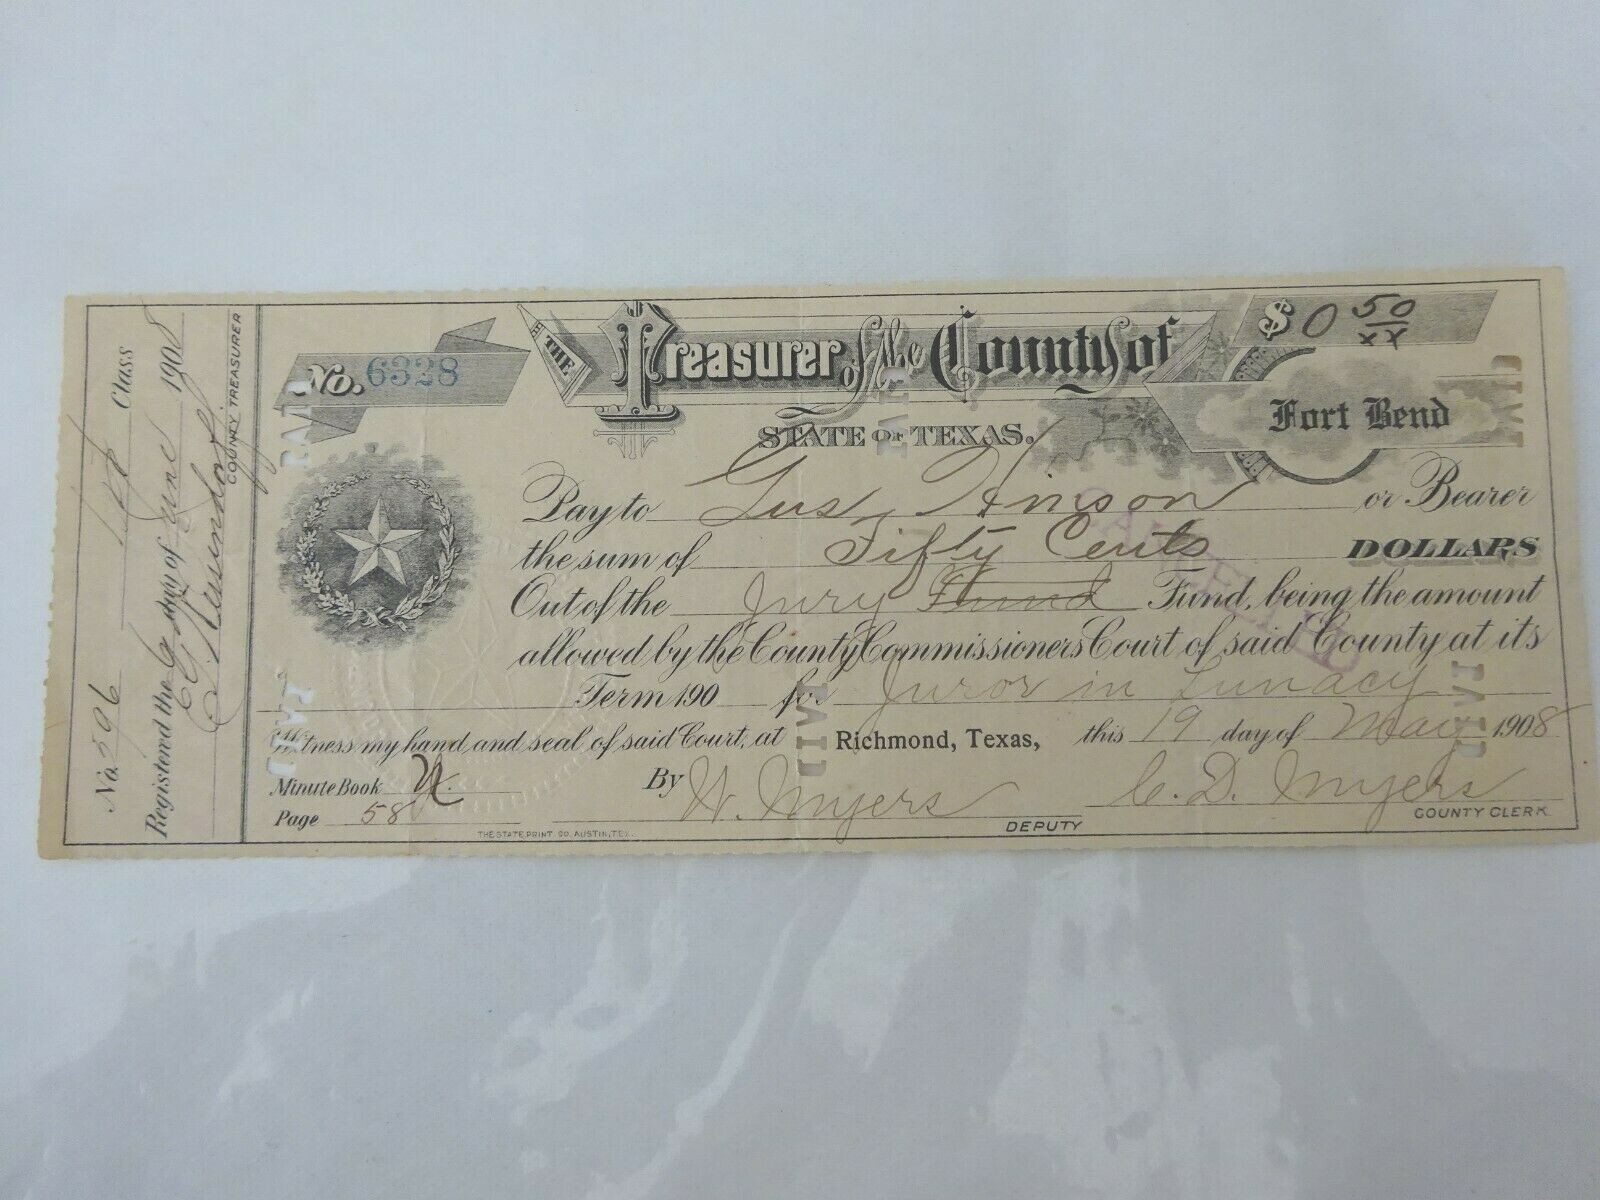 No. 6328
THE Treasurer of the County of
Fort Bend
$0 50/xx
STATE OF TEXAS.
Pay to Gus Vinson or Bearer
the sum of Fifty Cents DOLLARS
Out of the Jury Fund Fund, being the amount
allowed by the County Commissioners Court of said County at its
Term 190 for Juror in Lunacy
Witness my hand and seal of said Court, at Richmond, Texas, this 19 day of May 1908
Minute Book
Page 58
By W. Myers
DEPUTY
C. D. Myers
COUNTY CLERK
THE STATE PRINT. CO. AUSTIN, TEX.
No. 596 1st Class
Registered the 6 day of June 1908
COUNTY TREASURER
CANCELLED
PAID
PAID
PAID
PAID
PAID
PAID